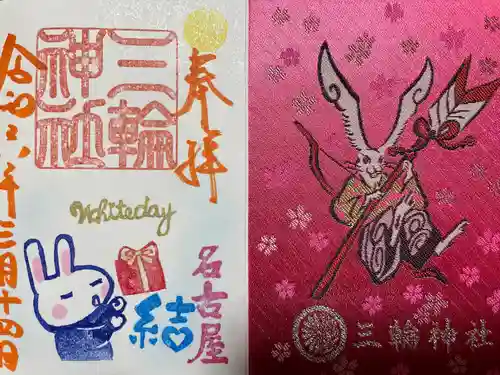 奉拝
三輪神社
令和六年三月十四日
Whiteday
名古屋
結
三輪神社